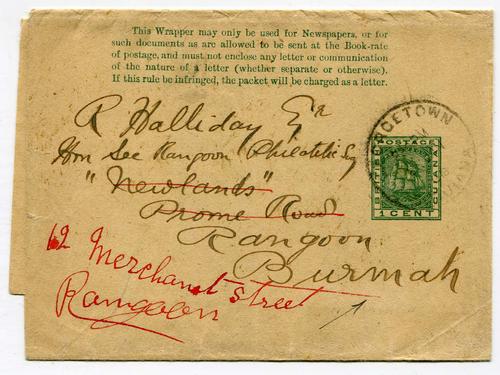 This Wrapper may only be used for Newspapers, or for
such documents as are allowed to be sent at the Book-rate
of postage, and must not enclose any letter or communication
of the nature of a letter (whether separate or otherwise).
If this rule be infringed, the packet will be charged as a letter.
R Halliday Esr
Hon Sec Rangoon Philatelic Sy
"Newlands"
Prome Road
Rangoon
Burmah
62 Merchant street
Rangoon
GEORGETOWN
POSTAGE
BRITISH
GUIANA
1 CENT